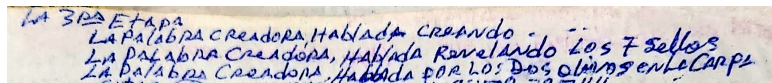 LA 3RA Etapa
LA PAlAbRA CREADORA, HablAdA CREANDO.
LA PALAbRA CREADORA, HablAdA Revelando Los 7 Sellos
LA PAlAbRA CREADORA, HAblAdA POR LOS DOS OlIVOS EN LA CARPA